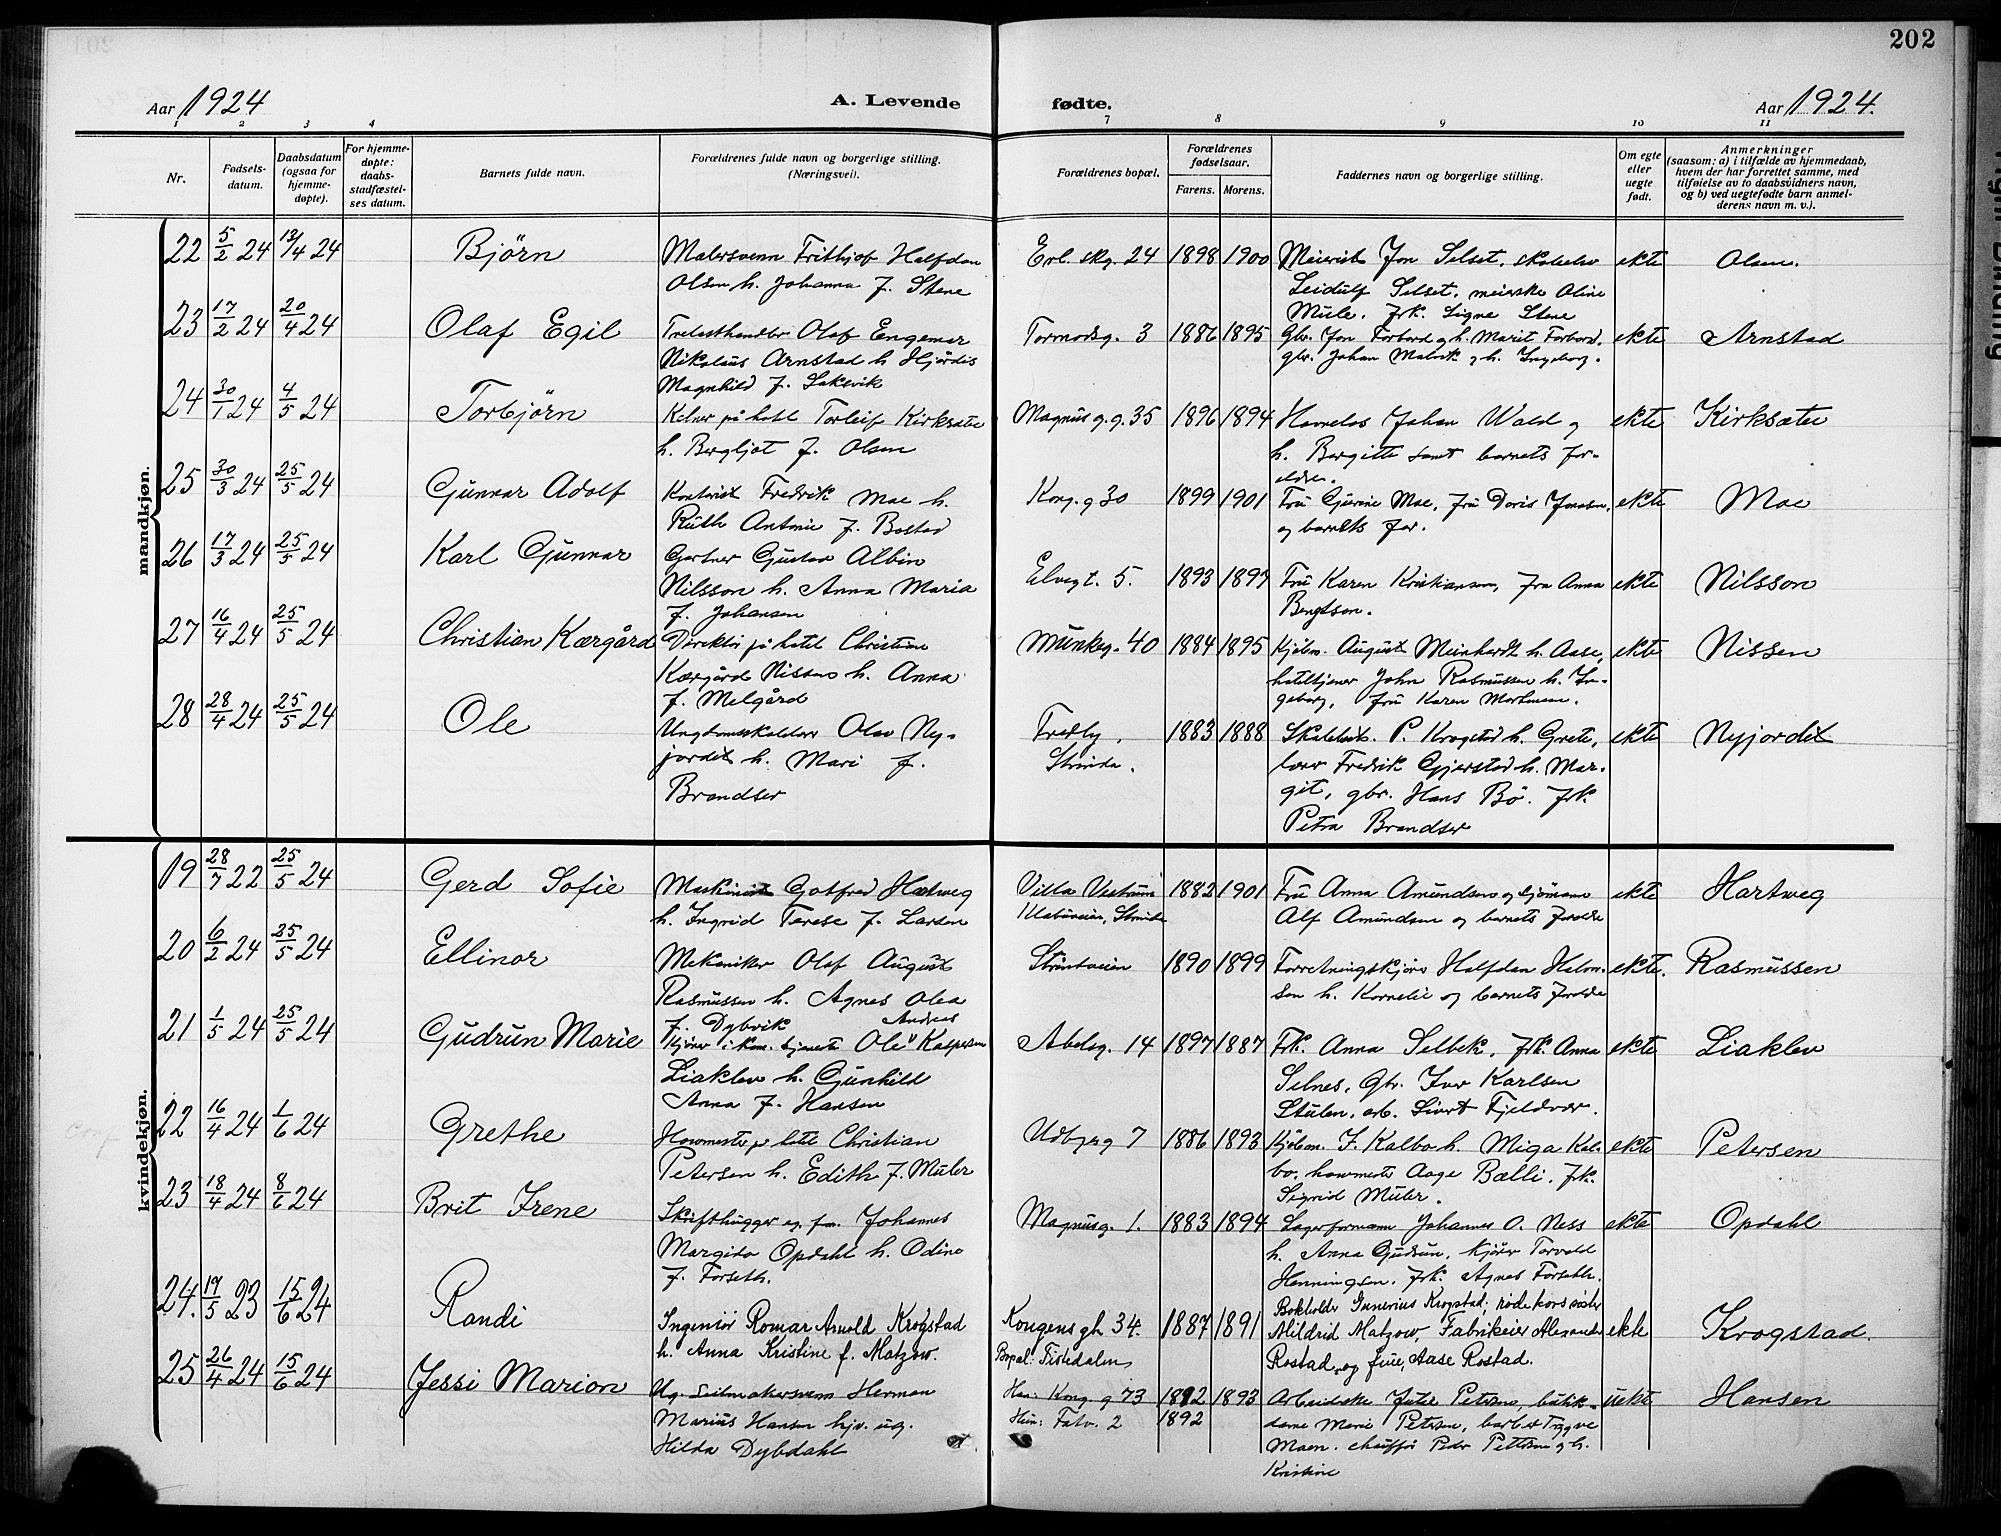 202
Aar 1924
A. Levende
fødte.
Aar 1924.
1 2 3 4 7 8 9 10 11
Nr.
Fødsels-
datum.
Daabsdatum
(ogsaa for
hjemme-
døpte).
For hjemme-
døpte:
daabs-
stadfæstel-
ses datum.
Barnets fulde navn.
Forældrenes fulde navn og borgerlige stilling.
(Næringsvei).
Forældrenes bopæl.
Forældrenes
fødselsaar.
Farens. Morens.
Faddernes navn og borgerlige stilling.
Om egte
eller
uegte
født.
Anmerkninger
(saasom: a) i tilfælde av hjemmedaab,
hvem der har forrettet samme, med
tilføielse av to daabsvidners navn,
og b) ved uegtefødte barn anmel-
derens navn m. v.).
mandkjøn.
22 5/2 24 13/4 24 Bjørn Malersvenn Frithjof Halfdan Erl. skg. 24 1898 1900 Meierist Jon Selset, skoleelev ekte Olsen.
Olsen h. Johanna f. Stene Leidulf Selset, meierske Oline
Mule. Frk. Signe Stene
23 17/2 24 20/4 24 Olaf Egil Trelasthandler Olaf Engemar Tormodsg. 3 1886 1895 Gbr. Jon Forbord og h. Marit Forbord, ekte Arnstad
Nikolaus Arnstad h Hjørdis gbr. Johan h. Ingeborg.
Magnhild f. Saksvik
24 30/1 24 4/5 24 Torbjörn Kelner på hotel Torleif Kirksæter Magnus g.g. 35 1896 1894 Johan Wald og ekte Kirksæter
h. Bergljot f. Olsen h. Bergitte samt barnets for-
eldre.
25 30/3 24 25/5 24 Gunnar Adolf Kontorist Fredrik Moe h. Kong. g 30 1899 1901 Fru Gurine Moe, fru Doris Jonasen, ekte Moe
Ruth Antonie f. Bostad og barnets far.
26 17/3 24 25/5 24 Karl Gunnar Gartner Gustav Albin Elvegt. 5. 1893 1897 Fru Karen Kristiansen, fru Anna ekte Nilsson
Nilsson h. Anna Maria Bengtson.
f. Johansen
27 16/4 24 25/5 24 Christian Kærgård Direktör på hotel Christian Munkeg. 40 1884 1895 Kjöbm. August Meinhardt h. Aase, ekte Nissen
Kærgård Nissen h. Anna hoteltjener John Rasmussen h. In-
f. Melgård geborg, fru Karen Mortensen.
28 28/4 24 25/5 24 Ole Ungdomsskolelærer Olav Ny- Fredly, 1883 1888 P. Krogstad h. Grete, ekte Nyjordet
jordet h. Mari f. Strinda. lærer Fredrik Gjerstad h. Mar-
Brandser git, gbr. Hans Bö. Frk.
Petra Brandser
kvindekjøn.
19 28/7 22 25/5 24 Gerd Sofie Maskinist Gotfred Hartweg Villa 1882 1901 Fru Anna Amundsen og sjömann ekte Hartweg
h. Ingrid Terese f. Larsen Klæbuveien, Strinda Alf Amundsen og barnets foreldre
20 6/2 24 25/5 24 Ellinor Mekaniker Olaf August 1890 1899 Forretningskjörer Halfdan ekte. Rasmussen
Rasmussen h. Agnes Olea h. Kornelie og barnets foreldre
f. Dybvik
21 1/5 24 25/5 24 Gudrun Marie Kjörer i kom. tjeneste Ole Andreas Kaspersen Abelsg. 14 1897 1887 Frk. Anna Selbek, frk. Anna ekte Liaklev
Liaklev h. Gunhild Selnes, Gbr. Iver Karlsen
Anna f. Hansen Stulen, arb. Sivert Fjeldvær.
22 16/4 24 1/6 24 Grethe Hovmester på hotel Christian Udbyeg 7 1886 1893 Kjöbm. F. Kalbo h. Miga Kal- ekte Petersen
Petersen h. Edith f. Müler bo. hovmester Aage Bælli. frk.
Sigrid Müler.
23 18/4 24 8/6 24 Brit Irene Skrifthugger og fm. Johannes Magnusg. 1. 1883 1894 Lagerformann Johannes O. Ness ekte Opdahl
Margido Opdahl h. Odine h. Anna Gudrun, kjörer Torvald
f. Forseth. Henningsen. frk. Agnes Forseth.
24. 19/5 23 15/6 24 Randi Ingeniör Romar Arnold Krogstad Kongens gt. 34. 1887 1891 Bokholder Gunerius Krogstad; rödekorssöster ekte Krogstad.
h. Anna Kristine f. Matzow. Bopæl: Tistedalen Mildrid Matzow, Fabrikeier Alexander
Rostad, og frue, Aase Rostad.
25 26/4 24 15/6 24 Jessi Marion Ug. Seilmakersvenn Herman Han: Kong. g 73 1892 1893 Arbeiderske Julie Petersen, butik- uekte Hansen
Marius Hansen hjv. ug. Hun: Fatv. 2 1892 dame Marie Petersen, barber Trygve
Hilda Dybdahl Moen. chauffør Peder Pettersen og h.
Kristine